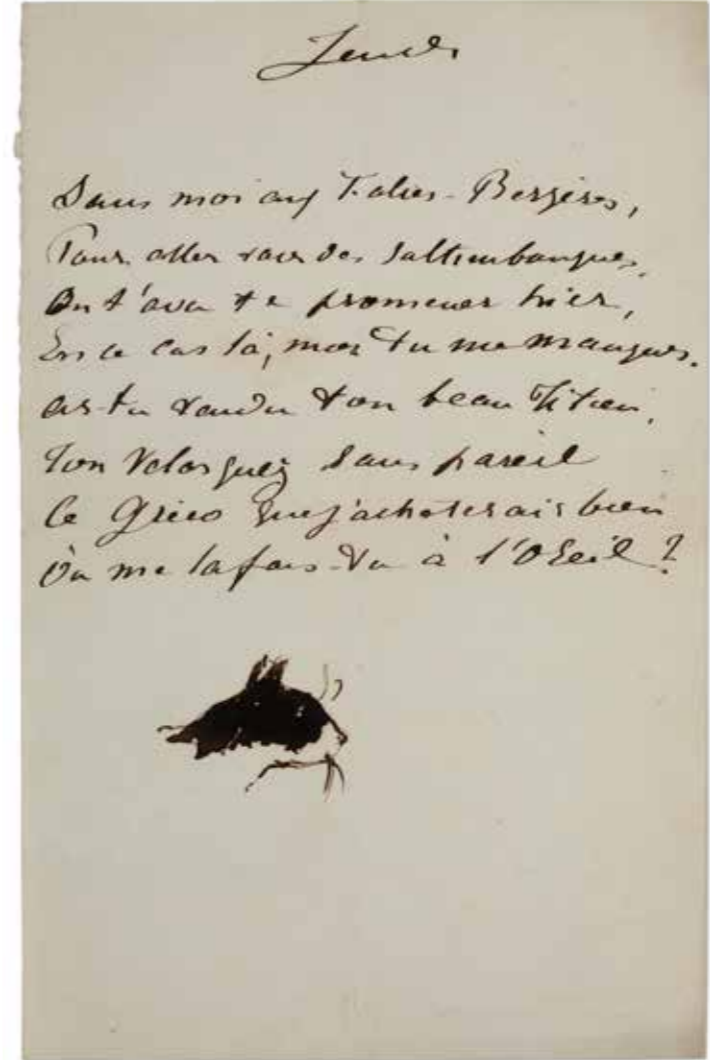 Jeudi
Sans moi aux Folies-Bergères,
Pour aller voir des saltimbanques,
On t'a vu te promener hier,
En ce cas là, moi tu me manques.
as-tu vendu ton beau Titien,
Ton Velasquez sans pareil
Ce Gréco que j'achèterais bien
Ou me la fais-tu à l'Oseil?